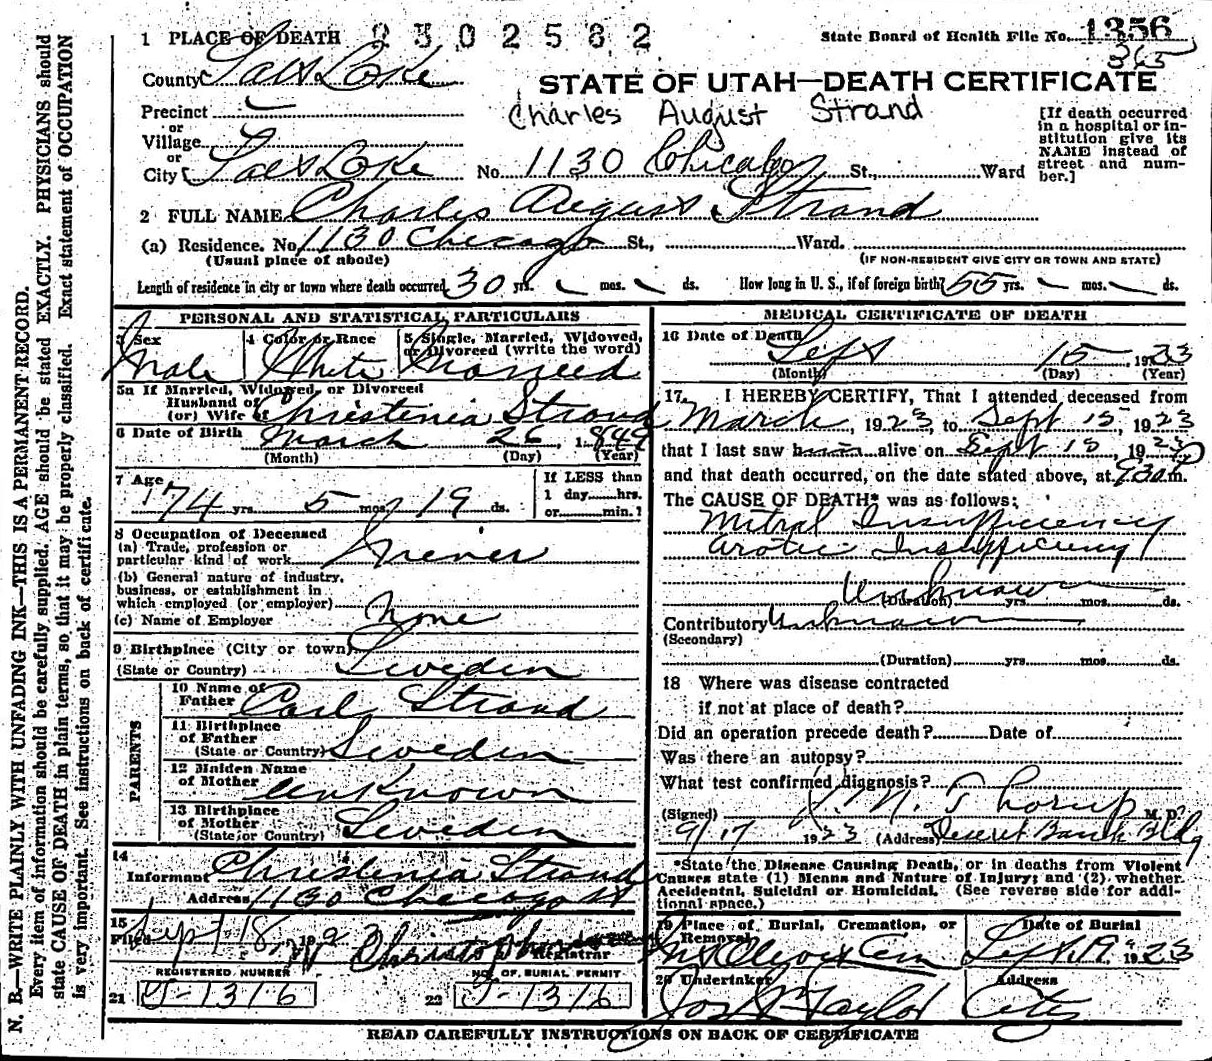 1 PLACE OF DEATH 2302582 State Board of Health File No. 1356
365
County Salt Lake
STATE OF UTAH—DEATH CERTIFICATE
Precinct
Charles August Strand
or
Village
or
City Salt Lake No. 1130 Chicago St., Ward
[If death occurred
in a hospital or in-
stitution give its
NAME instead of
street and num-
ber.]
2 FULL NAME Charles August Strand
(a) Residence. No. 1130 Chicago St., Ward.
(Usual place of abode) (IF NON-RESIDENT GIVE CITY OR TOWN AND STATE)
Length of residence in city or town where death occurred 30 yrs. mos. ds. How long in U. S., if of foreign birth? 55 yrs. mos. ds.
PERSONAL AND STATISTICAL PARTICULARS
3 Sex 4 Color or Race 5 Single, Married, Widowed,
or Divorced (write the word)
Male White Married
5a If Married, Widowed, or Divorced
Husband of
(or) Wife of Christenia Strand
6 Date of Birth March 26 1849
(Month) (Day) (Year)
7 Age
74 yrs. 5 mos. 19 ds.
If LESS than
1 day hrs.
or min.?
8 Occupation of Deceased
(a) Trade, profession or
particular kind of work Miner
(b) General nature of industry,
business, or establishment in
which employed (or employer)
(c) Name of Employer None
9 Birthplace (City or town)
(State or Country) Sweden
PARENTS
10 Name of
Father Carl Strand
11 Birthplace
of Father
(State or Country) Sweden
12 Maiden Name
of Mother unknown
13 Birthplace
of Mother
(State or Country) Sweden
14
Informant Christenia Strand
Address 1130 Chicago St
15
Filed Sept 18, 192
Registrar
REGISTERED NUMBER NO. OF BURIAL PERMIT
21 J-1316 22 J-1316
MEDICAL CERTIFICATE OF DEATH
16 Date of Death
Sept 15 1923
(Month) (Day) (Year)
17 I HEREBY CERTIFY, That I attended deceased from
March, 1923, to Sept 15, 1923
that I last saw him alive on Sept 15, 1923
and that death occurred, on the date stated above, at 930 m.
The CAUSE OF DEATH* was as follows:
Mitral Insufficiency
Arotic Insufficiency
Unknown
(Duration) yrs. mos. ds.
Contributory Unknown
(Secondary)
(Duration) yrs. mos. ds.
18 Where was disease contracted
if not at place of death?
Did an operation precede death? Date of
Was there an autopsy?
What test confirmed diagnosis?
(Signed) N. Thorup M. D.
9/17 1923 (Address) Deseret Bank Bldg
*State the Disease Causing Death, or in deaths from Violent
Causes state (1) Means and Nature of Injury; and (2), whether
Accidental, Suicidal or Homicidal. (See reverse side for addi-
tional space.)
19 Place of Burial, Cremation, or
Removal
Date of Burial
Mt Olivet Cem Sept 19 1923
20 Undertaker Address
Jos Taylor City
READ CAREFULLY INSTRUCTIONS ON BACK OF CERTIFICATE
N. B.—WRITE PLAINLY WITH UNFADING INK—THIS IS A PERMANENT RECORD.
Every item of information should be carefully supplied. AGE should be stated EXACTLY. PHYSICIANS should
state CAUSE OF DEATH in plain terms, so that it may be properly classified. Exact statement of OCCUPATION
is very important. See instructions on back of certificate.